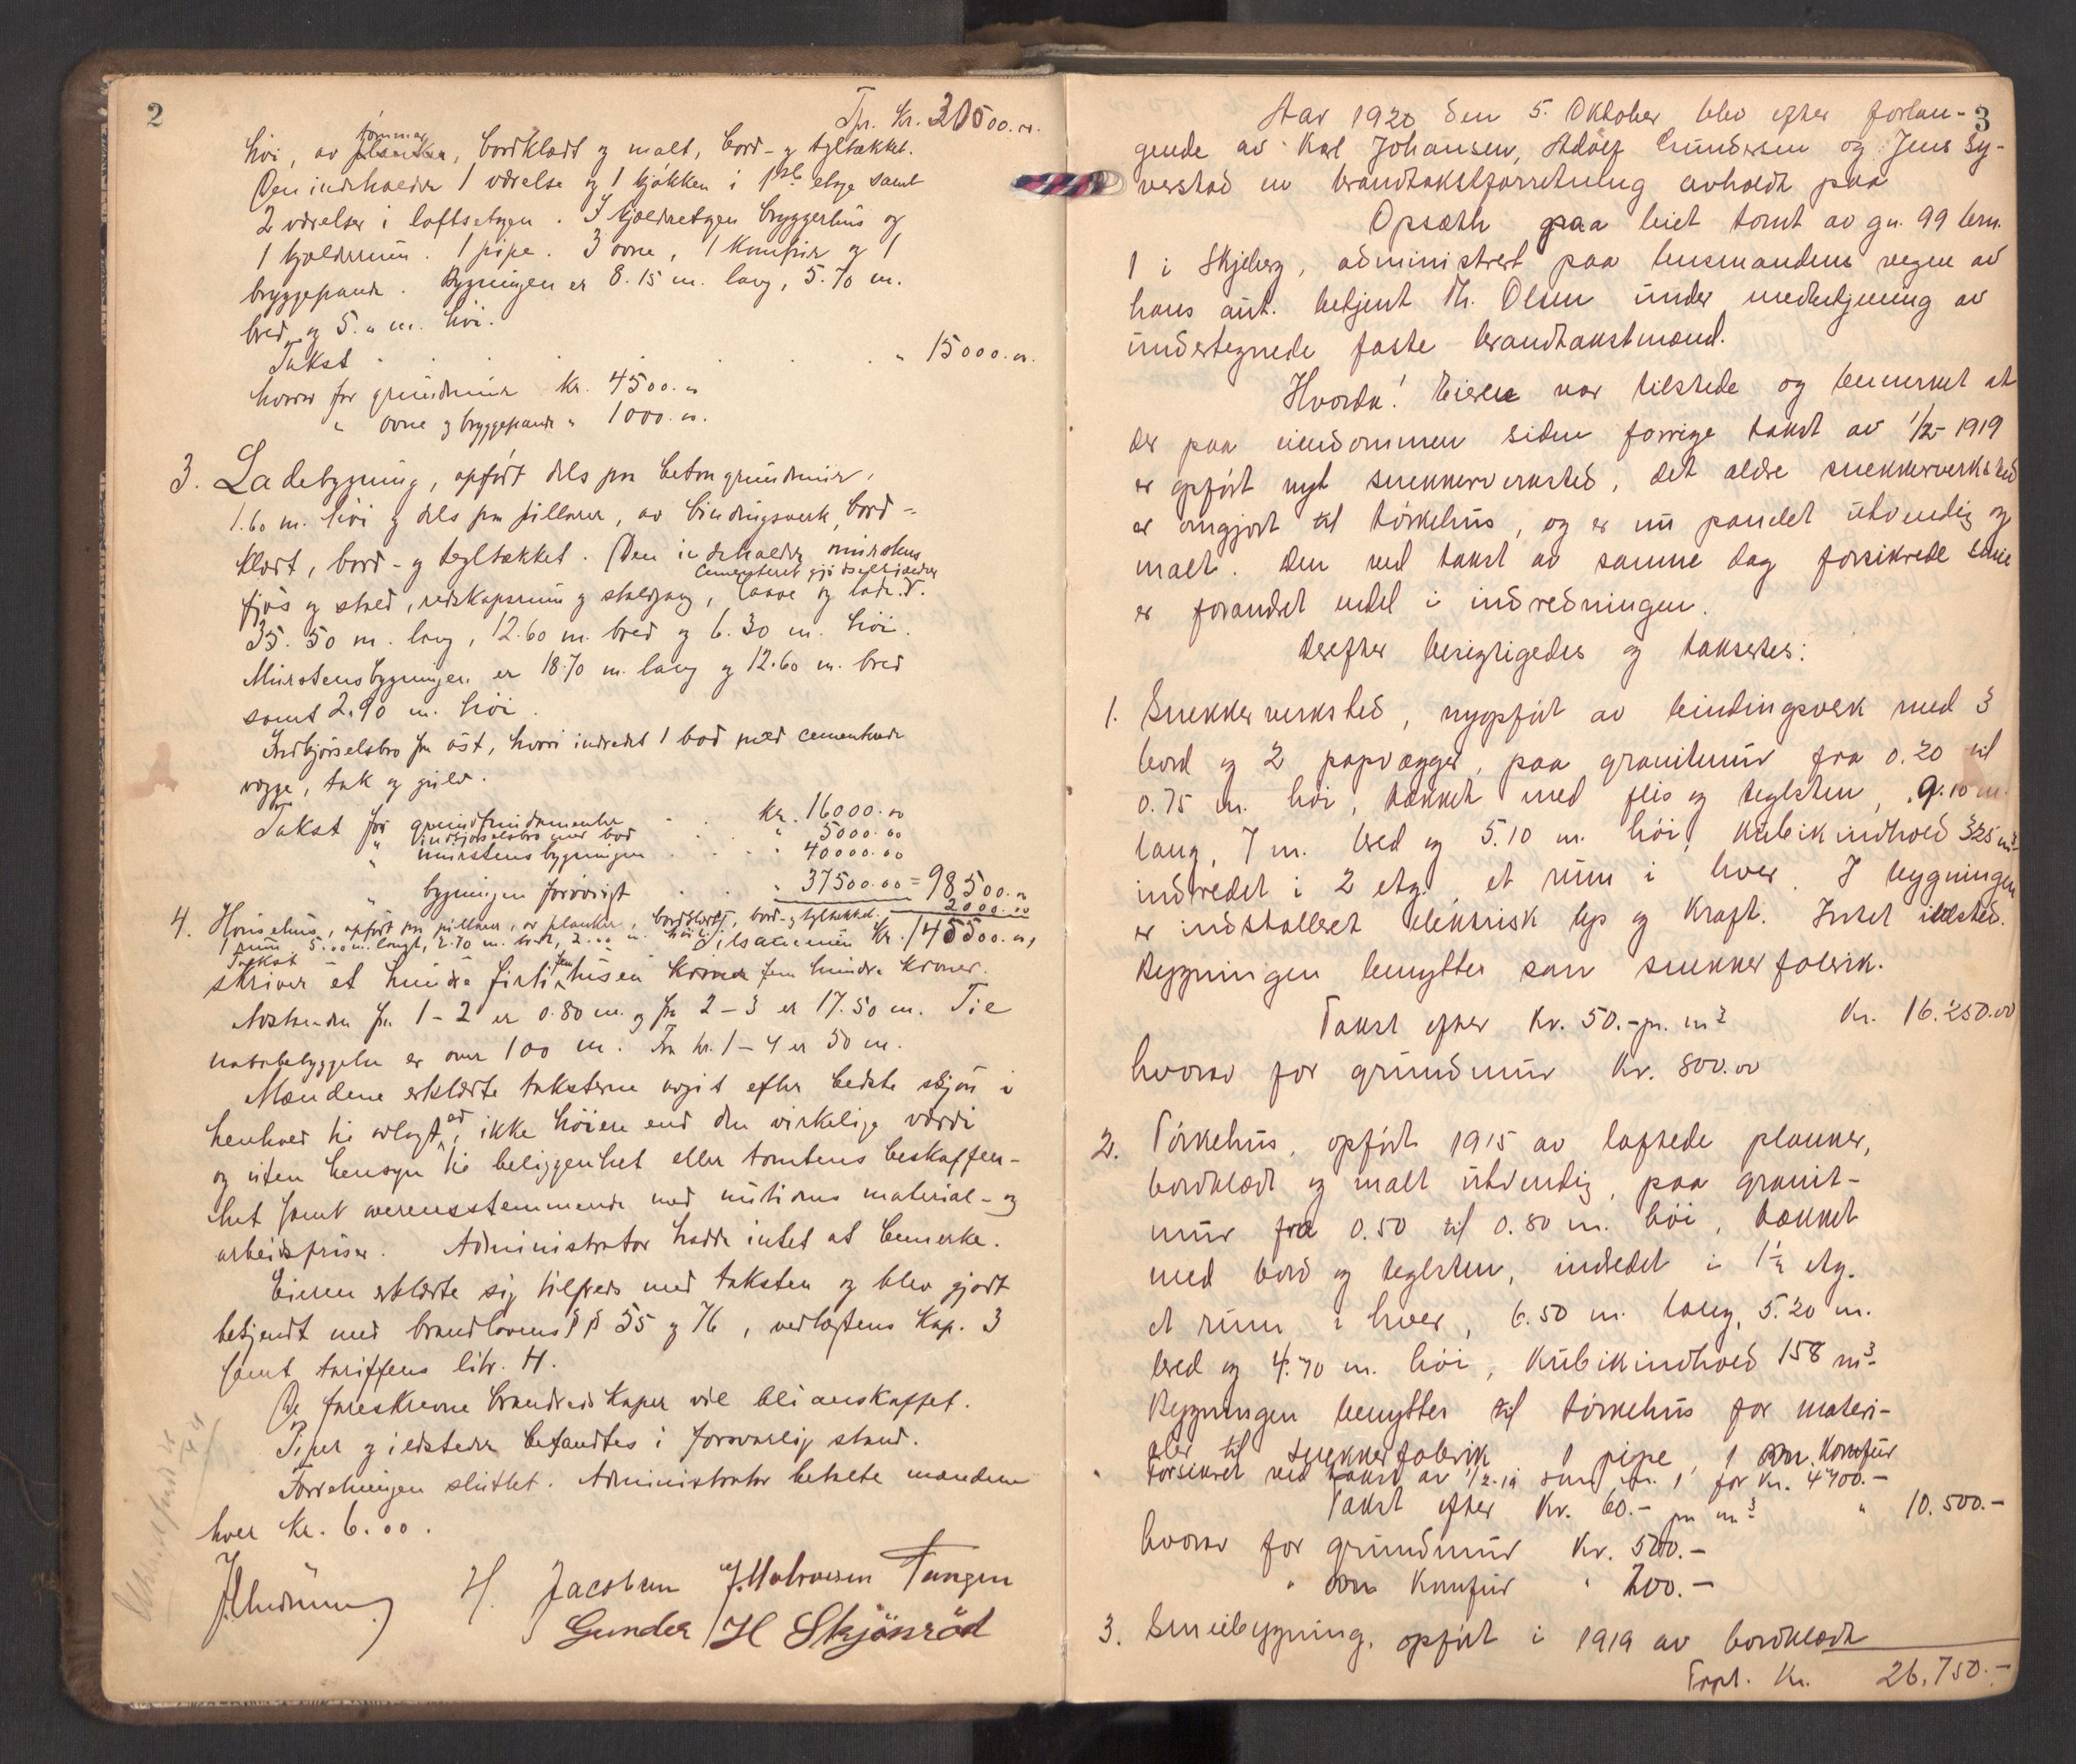 2
Tpr. kr. 30500.00
tømmer
høi, av planker, bordklædt og malt, bord- og tegltækket.
Den indeholder 1 værelse og 1 kjøkken i 1ste etage samt
2 værelser i loftsetagen. I kjælderetagen bryggerhus og
1 kjælderrum. 1 pipe. 3 ovne, 1 komfur og 1
bryggepande. Bygningen er 8.15 m. lang, 5.70 m.
bred og 5.00 m. høi.
Takst . . . . . " 15000.00
hvorav for grundmur kr. 4500.00
" ovne og bryggepande " 1000.00
3. Ladebygning, opført dels paa betongrundmur,
1.60 m. høi og dels paa pillarer, av bindingsverk, bord-
klædt, bord- og tegltækket. Den indeholder murstens
cementeret gjødselkjælder
fjøs og stald, redskapsrum og staldgang, laave og lade.
35.50 m. lang, 12.60 m. bred og 6.30 m. høi.
Murstensbygningen er 18.70 m. lang og 12.60 m. bred
samt 2.90 m. høi.
Indkjørselsbro fra øst, hvori indredet 1 bod med cementerede
vægge, tak og gulv.
Takst for grundfundamenter . . kr. 16000.00
" indkjørselsbro med bod . . " 5000.00
" murstensbygningen . . . " 40000.00
" bygningen forøvrigt . . " 37500.00 = 98500.00
4. Hønsehus, opført paa pillarer, av planker, bordklædt, bord- og tegltækket.
1 rum, 5.00 m. langt, 2.70 m. bredt, 2.00 m. høit.
Takst 2000.00
Tilsammen kr. 145500.00,
skriver et hundre firti fem tusen kroner fem hundre kroner.
Avstanden fra 1-2 er 0.80 m. og fra 2-3 er 17.50 m. Til
nabobebyggelse er over 100 m. Fra nr. 1-4 er 50 m.
Mændene erklærte taksterne avgit efter bedste skjøn i
henhold til avlagt ed, ikke høiere end den virkelige værdi
og uten hensyn til beliggenhet eller tomtens beskaffen-
het samt overensstemmende med nutidens material- og
arbeidspriser. Administrator hadde intet at bemerke.
Eieren erklærte sig tilfreds med taksten og blev gjort
bekjendt med brandlovens §§ 55 og 76, vedtægtens Kap. 3
samt tariffens litr. H.
De foreskrevne brandredskaper vil bli anskaffet.
Piper og ildsteder befandtes i forsvarlig stand.
Forretningen sluttet. Administrator betalte mændene
hver kr. 6.00.
H. Jacobsen J. Halvorsen Tangen
Gunder H Skjönröd
3
Aar 1920 den 5. Oktober blev efter forlan-
gende av Karl Johansen, Adolf Gundersen og Jens Sy-
verstad en brandtakstforretning avholdt paa
Opsæth paa leiet tomt av gn. 99 brn.
1 i Skjeberg, administrert paa lensmandens vegne av
hans aut. betjent Th. Olsen under medbetjening av
undertegnede faste brandtakstmænd.
Hvorda! Eierne var tilstede og bemerket at
der paa eiendommen siden forrige takst av 1/2-1919
er opført nyt snekkerverksted, det ældre snekkerverksted
er omgjort til tørkehus, og er nu panelet utvendig og
malt. Den ved takst av samme dag forsikrede smie
er forandret endel i indredningen.
Derefter besigtigedes og taksertes:
1. Snekkerverksted, nyopført av bindingsverk med 3
bord og 2 papvægger, paa granitmur fra 0.20 til
0.75 m. høi, tækket med flis og teglsten, 9.10 m.
lang, 7 m. bred og 5.10 m. høi, kubikindhold 325 m³-
indredet i 2 etg. et rum i hver. I bygningen
er indstalleret elektrisk lys og kraft. Intet ildsted.
Bygningen benyttes som snekkerfabrik.
Takst efter kr. 50.- pr. m³ kr. 16.250.00
hvorav for grundmur kr. 800.00
2. Tørkehus, opført 1915 av laftede planker,
bordklædt og malt utvendig, paa granit-
mur fra 0.50 til 0.80 m. høi, tækket
med bord og teglsten, indredet i 1½ etg.
et rum i hver, 6.50 m. lang, 5.20 m.
bred og 4.70 m. høi, kubikindhold 158 m³-
Bygningen benyttes til tørkehus for materi-
aler til snekkerfabrik 1 pipe, 1 komfur
Forsikret ved takst av 1/2-19 som nr. 1 for kr. 4700.-
Takst efter kr. 60.- pr m³ " 10.500.-
hvorav for grundmur kr. 500.-
" komfur " 200.-
3. Smiebygning, opført i 1919 av bordklædt
Trpt. kr. 26.750.-